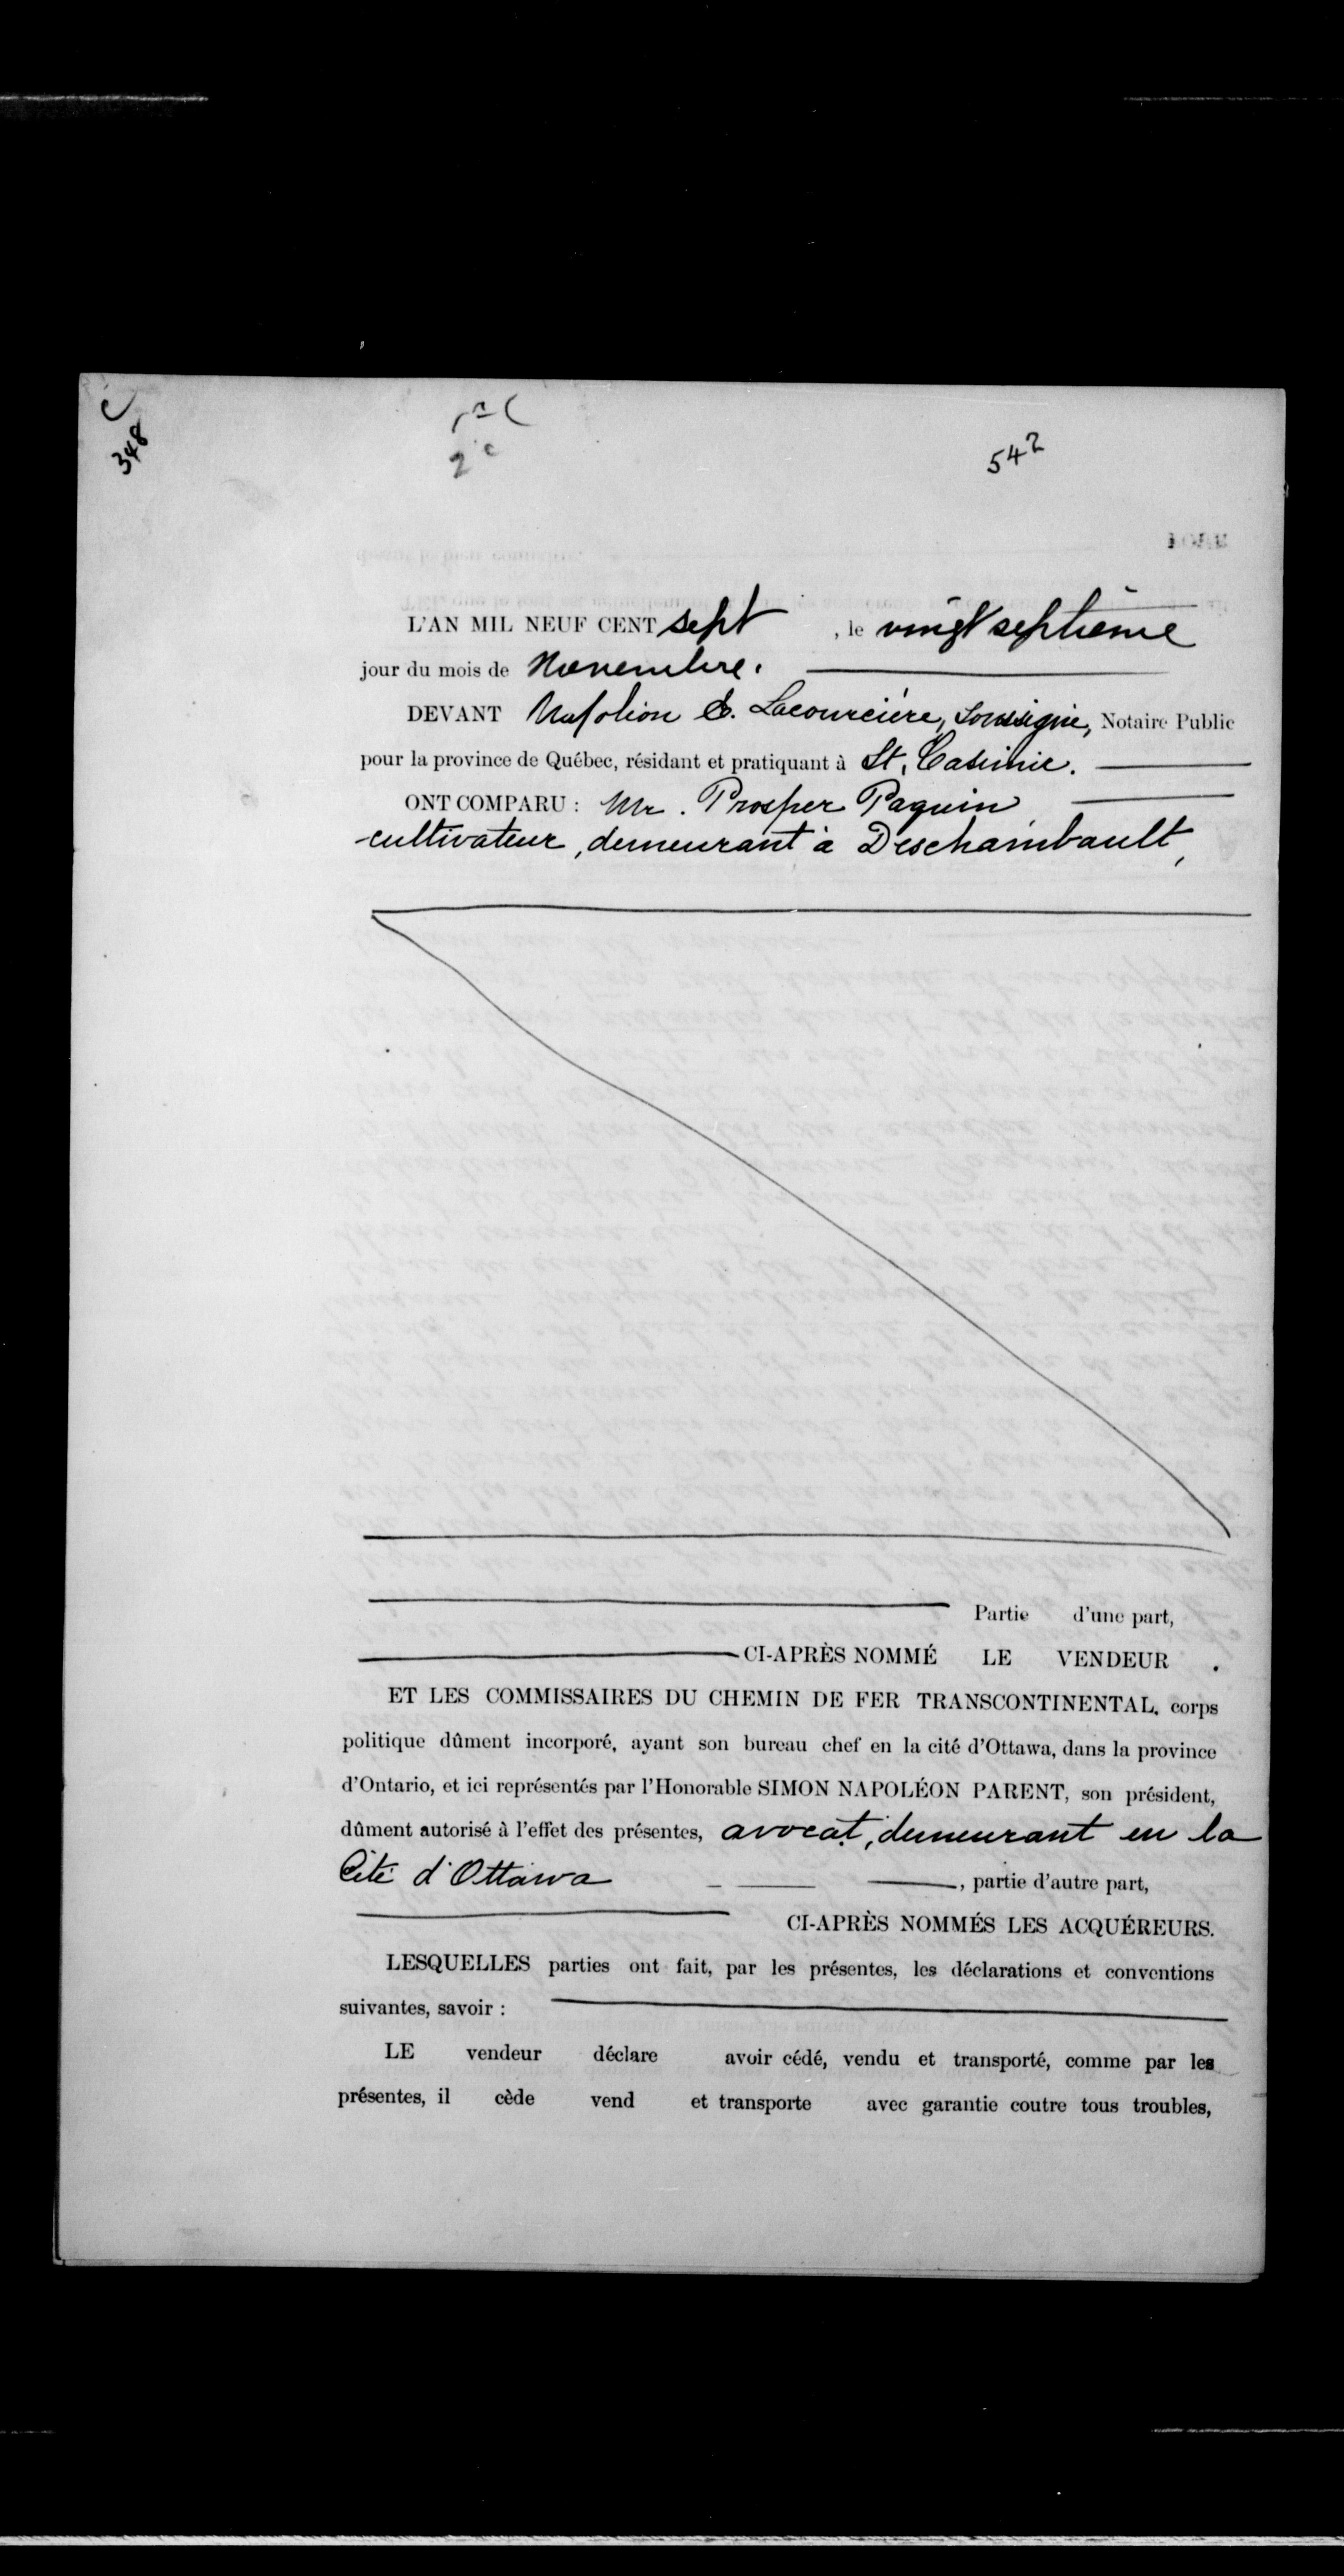 C
348
2 c
542
L'AN MIL NEUF CENT sept , le vingt septième
jour du mois de Novembre.
DEVANT Napoléon S. Lacourcière, soussigné, Notaire Public
pour la province de Québec, résidant et pratiquant à St, Casimir.
ONT COMPARU : Mr. Prosper Paquin
cultivateur, demeurant à Deschambault,
Partie d'une part,
CI-APRÈS NOMMÉ LE VENDEUR .
ET LES COMMISSAIRES DU CHEMIN DE FER TRANSCONTINENTAL, corps
politique dûment incorporé, ayant son bureau chef en la cité d'Ottawa, dans la province
d'Ontario, et ici représentés par l'Honorable SIMON NAPOLÉON PARENT, son président,
dûment autorisé à l'effet des présentes, avocat, demeurant en la
Cité d'Ottawa , partie d'autre part,
CI-APRÈS NOMMÉS LES ACQUÉREURS.
LESQUELLES parties ont fait, par les présentes, les déclarations et conventions
suivantes, savoir :
LE vendeur déclare avoir cédé, vendu et transporté, comme par les
présentes, il cède vend et transporte avec garantie coutre tous troubles,